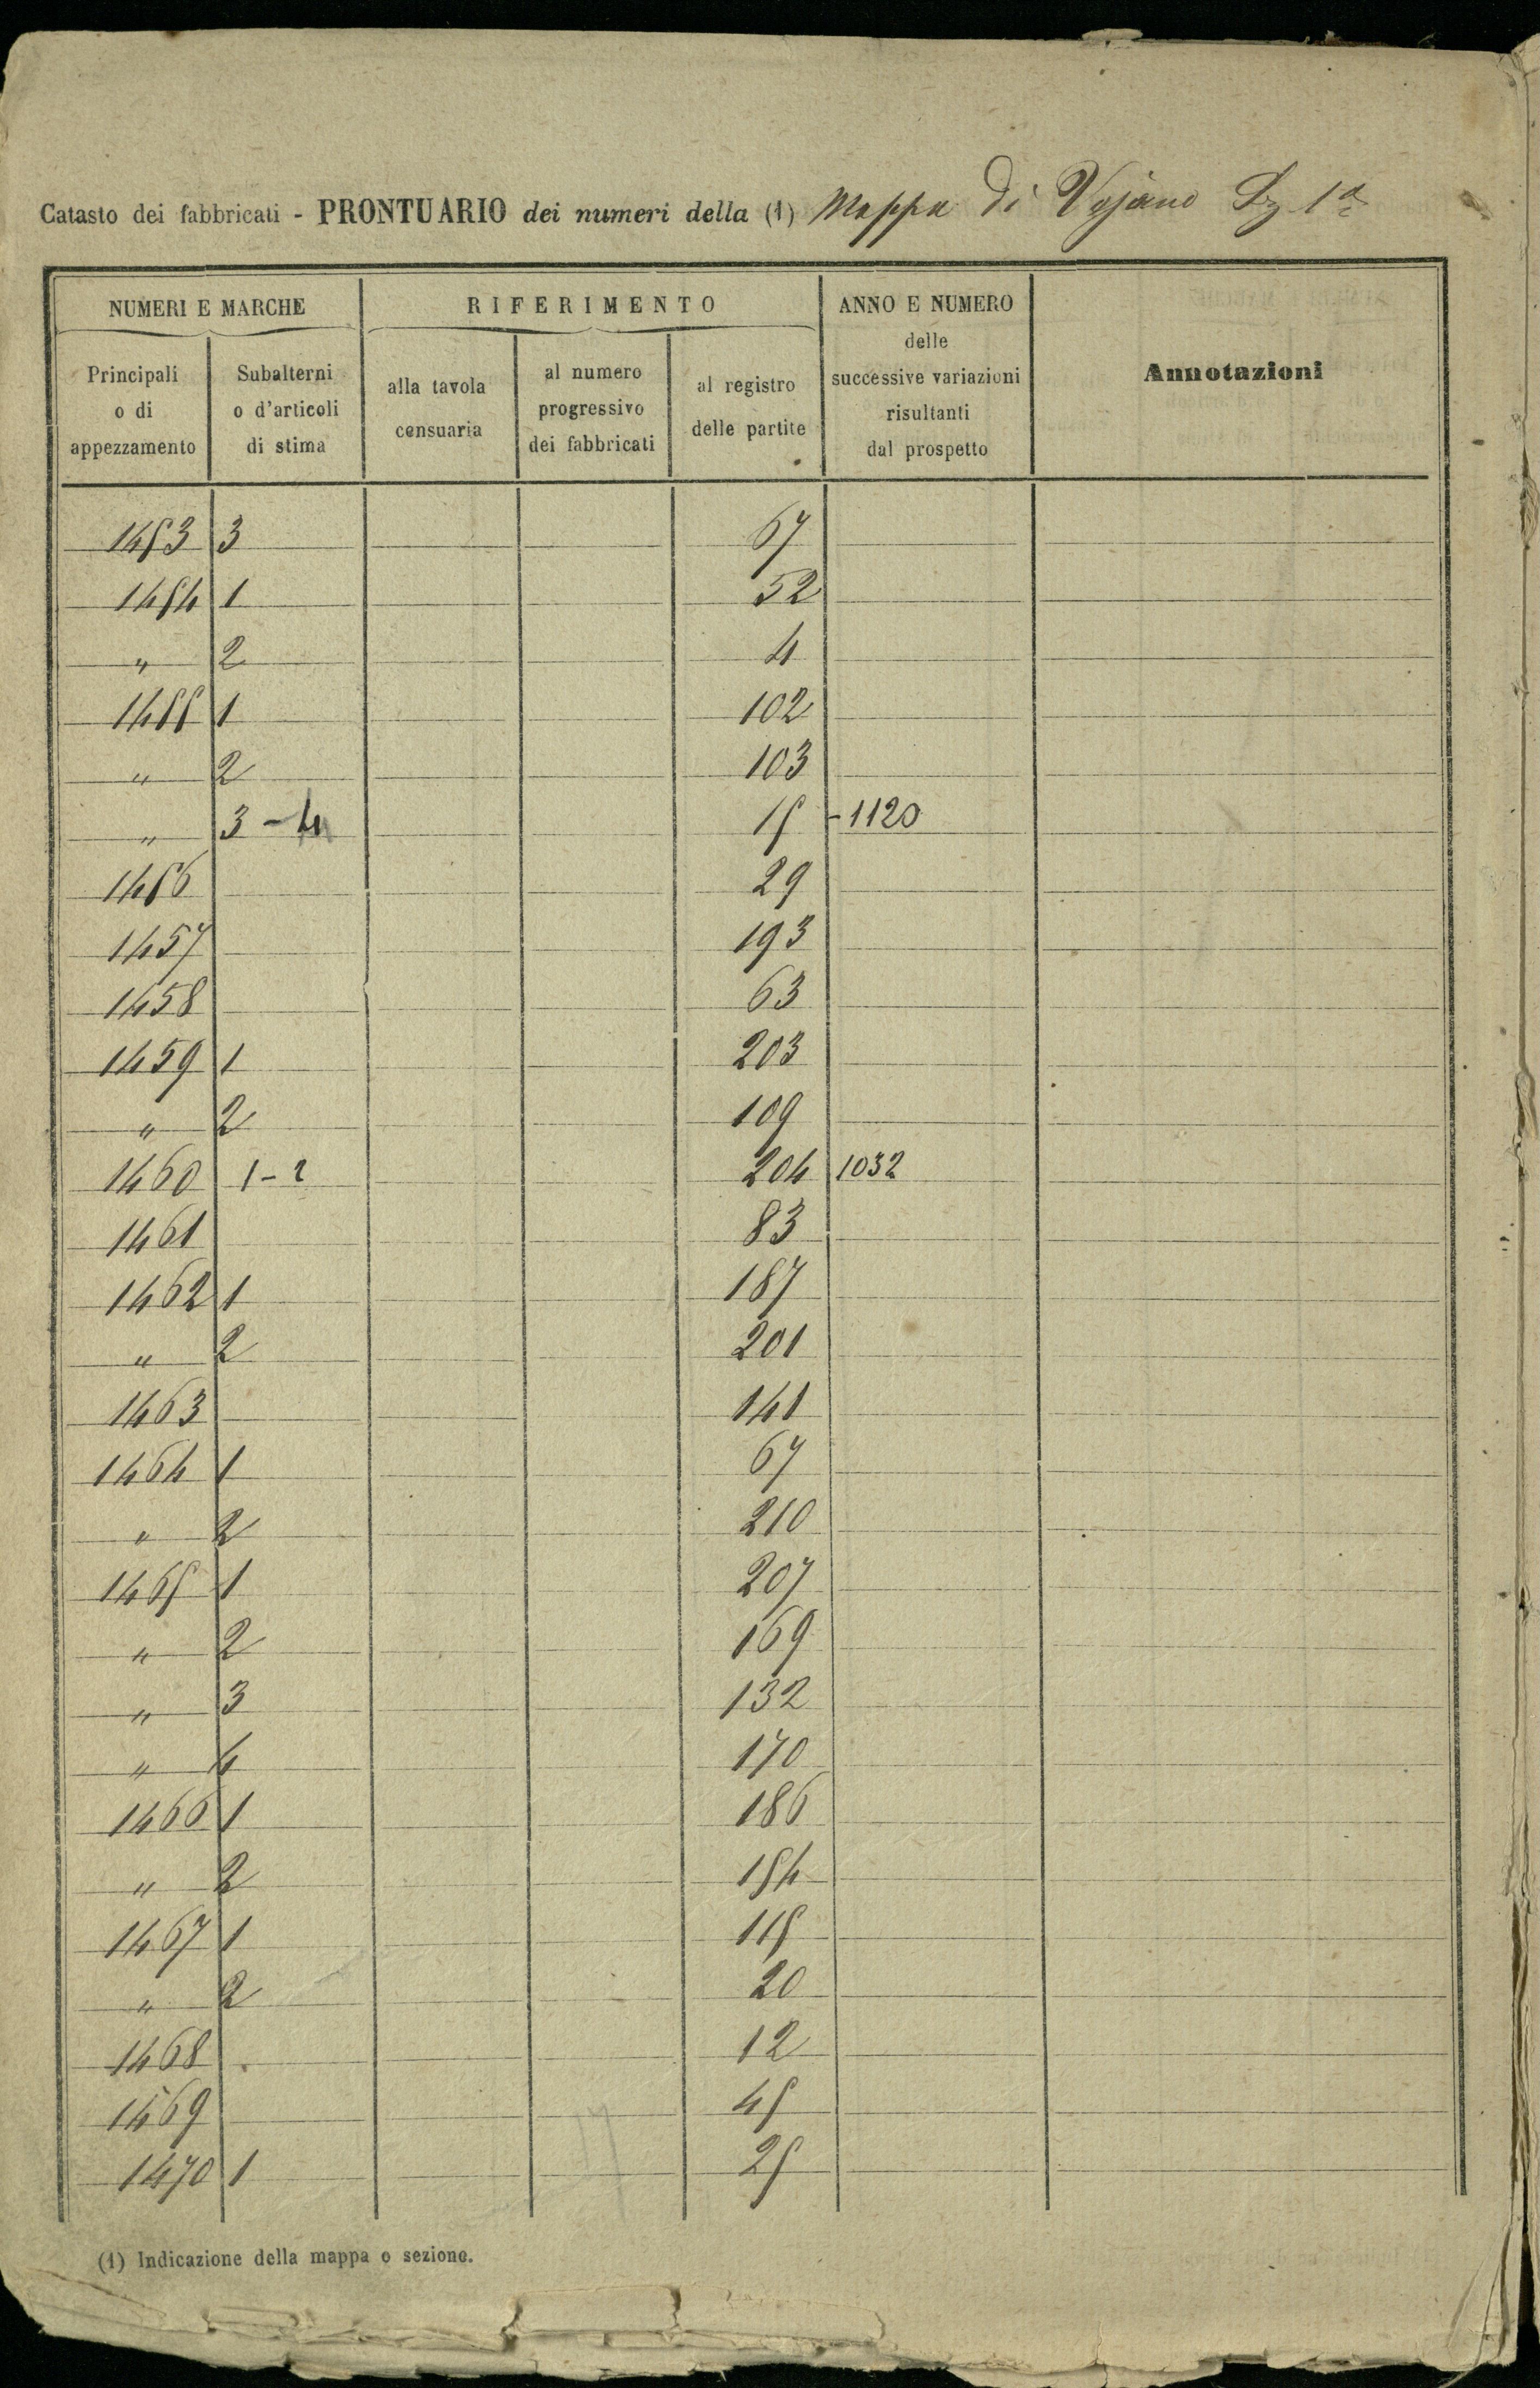 Catasto dei fabbricati - PRONTUARIO dei numeri della (1) Mappa di Vejano Sez 1ª
NUMERI E MARCHE RIFERIMENTO ANNO E NUMERO delle successive variazioni risultanti dal prospetto Annotazioni
Principali o di appezzamento Subalterni o d'articoli di stima alla tavola censuaria al numero progressivo dei fabbricati al registro delle partite
1453 3 67
1454 1 52
" 2 4
1455 1 102
" 2 103
" 3 - 4 15 - 1120
1456 29
1457 193
1458 63
1459 1 203
" 2 109
1460 1 - 2 204 1032
1461 83
1462 1 187
" 2 201
1463 141
1464 1 67
" 2 210
1465 1 207
" 2 169
" 3 132
" 4 170
1466 1 186
" 2 154
1467 1 115
" 2 20
1468 12
1469 45
1470 1 25
(1) Indicazione della mappa o sezione.